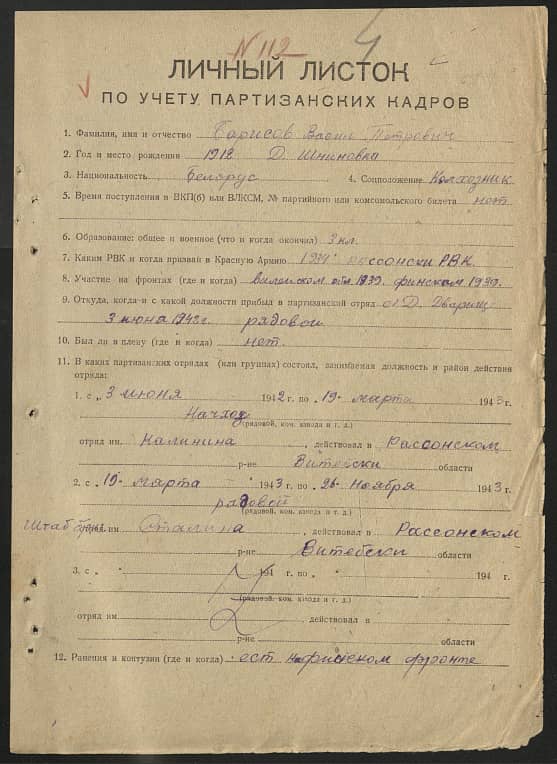 N 112
ЛИЧНЫЙ ЛИСТОК
ПО УЧЕТУ ПАРТИЗАНСКИХ КАДРОВ
1. Фамилия, имя и отчество Барисов Васил Петрович
2. Год и место рождения 1918 Д. Шниловка
3. Национальность Белорус 4. Соцположение Колхозник
5. Время поступления в ВКП(б) или ВЛКСМ, № партийного или комсомольского билета нет
6. Образование: общее и военное (что и когда окончил) 3 кл.
7. Каким РВК и когда призван в Красную Армию россонски РВК
8. Участие на фронтах (где и когда) 1939. финском 1939.
9. Откуда, когда и с какой должности прибыл в партизанской отряд Д. Дварищ
3 июна 1942 г. рядовой
10. Был ли в плену (где и когда) нет.
11. В каких партизанских отрядах (или группах) состоял, занимаемая должность и район действия
отряда:
1. с 3 июня 1942 г. по 19 марта 1943 г.
Начхоз
(рядовой, ком. взвода и т. д.)
отряд им. Калинина, действовал в Рассонском
р-не Витебски области
2. с 19 марта 1943 г. по 26 Ноября 1943 г.
рядовой
(рядовой, ком. взвода и т. д.)
Штаб бриг. им Сталина, действовал в Рассонском
р-не Витебски области
3. с 194 г. по 194 г.
(рядовой, ком. взвода и т. д.)
отряд им. , действовал в
р-не области
12. Ранения и контузии (где и когда) ест на финском фронте